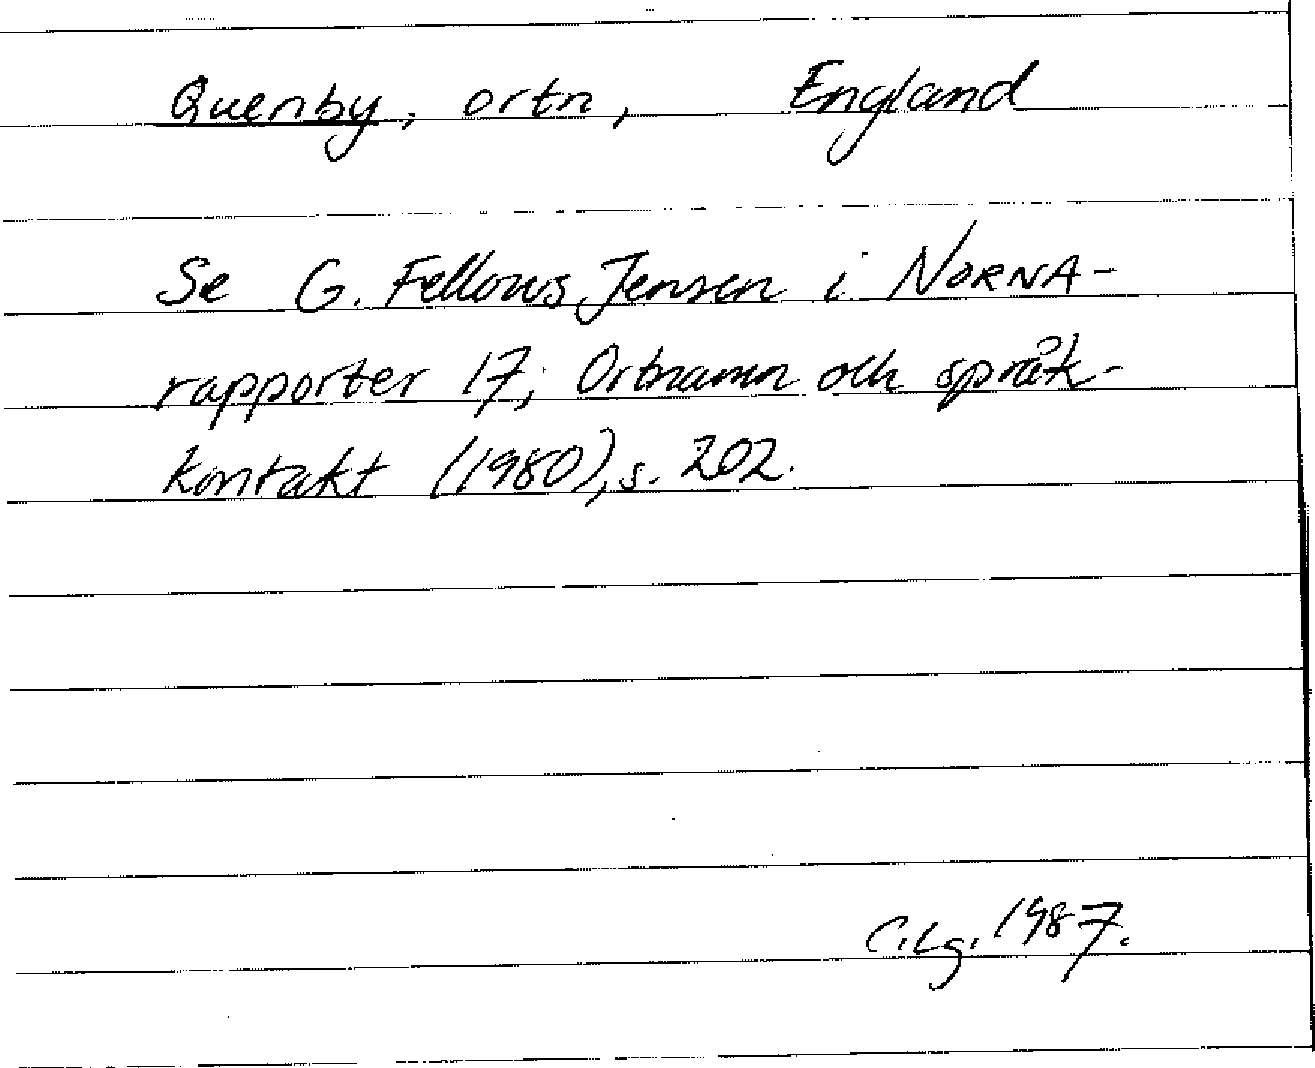 Quenby, ortn, England
Se G. Fellows Jensen i NORNA-
rapporter 17, Ortnamn och språk-
kontakt (1980), s. 202.
C.Lg. 1987.